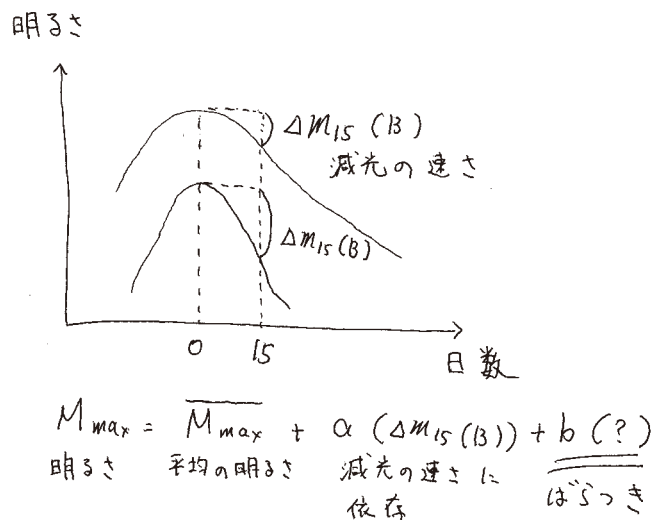 明るさ
Δm15 (B)
減光の速さ
Δm15 (B)
0 15
日数
Mmax = Mmax + a (Δm15 (B)) + b (?)
明るさ 平均の明るさ 減光の速さに ばらつき
依存